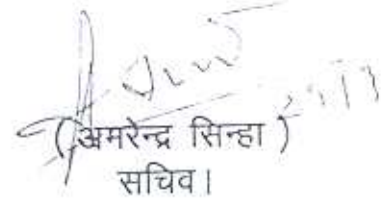 (अमरेन्द्र सिन्हा)
सचिव।